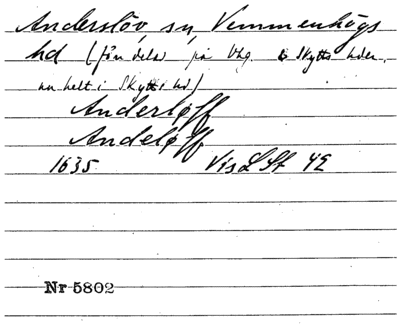 Anderslöv, sn, Vemmenhögs
hd (förr delad på Vhg o Skytts hder,
nu helt i Skytts hd)
Anderløff
Andeløff
1635. Vis L St 42
Nr 5802